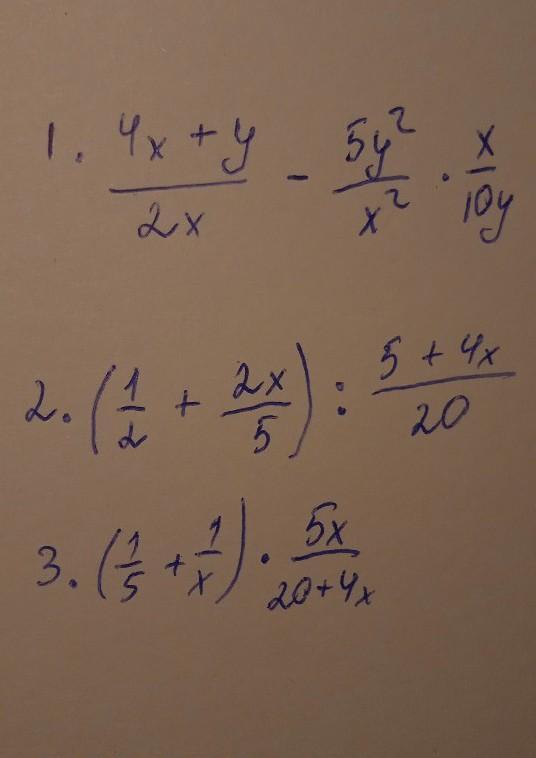 1. (4x + y)/(2x) - (5y²)/(x²) · x/(10y)
2. (1/2 + 2x/5) : (5 + 4x)/20
3. (1/5 + 1/x) · 5x/(20+4x)